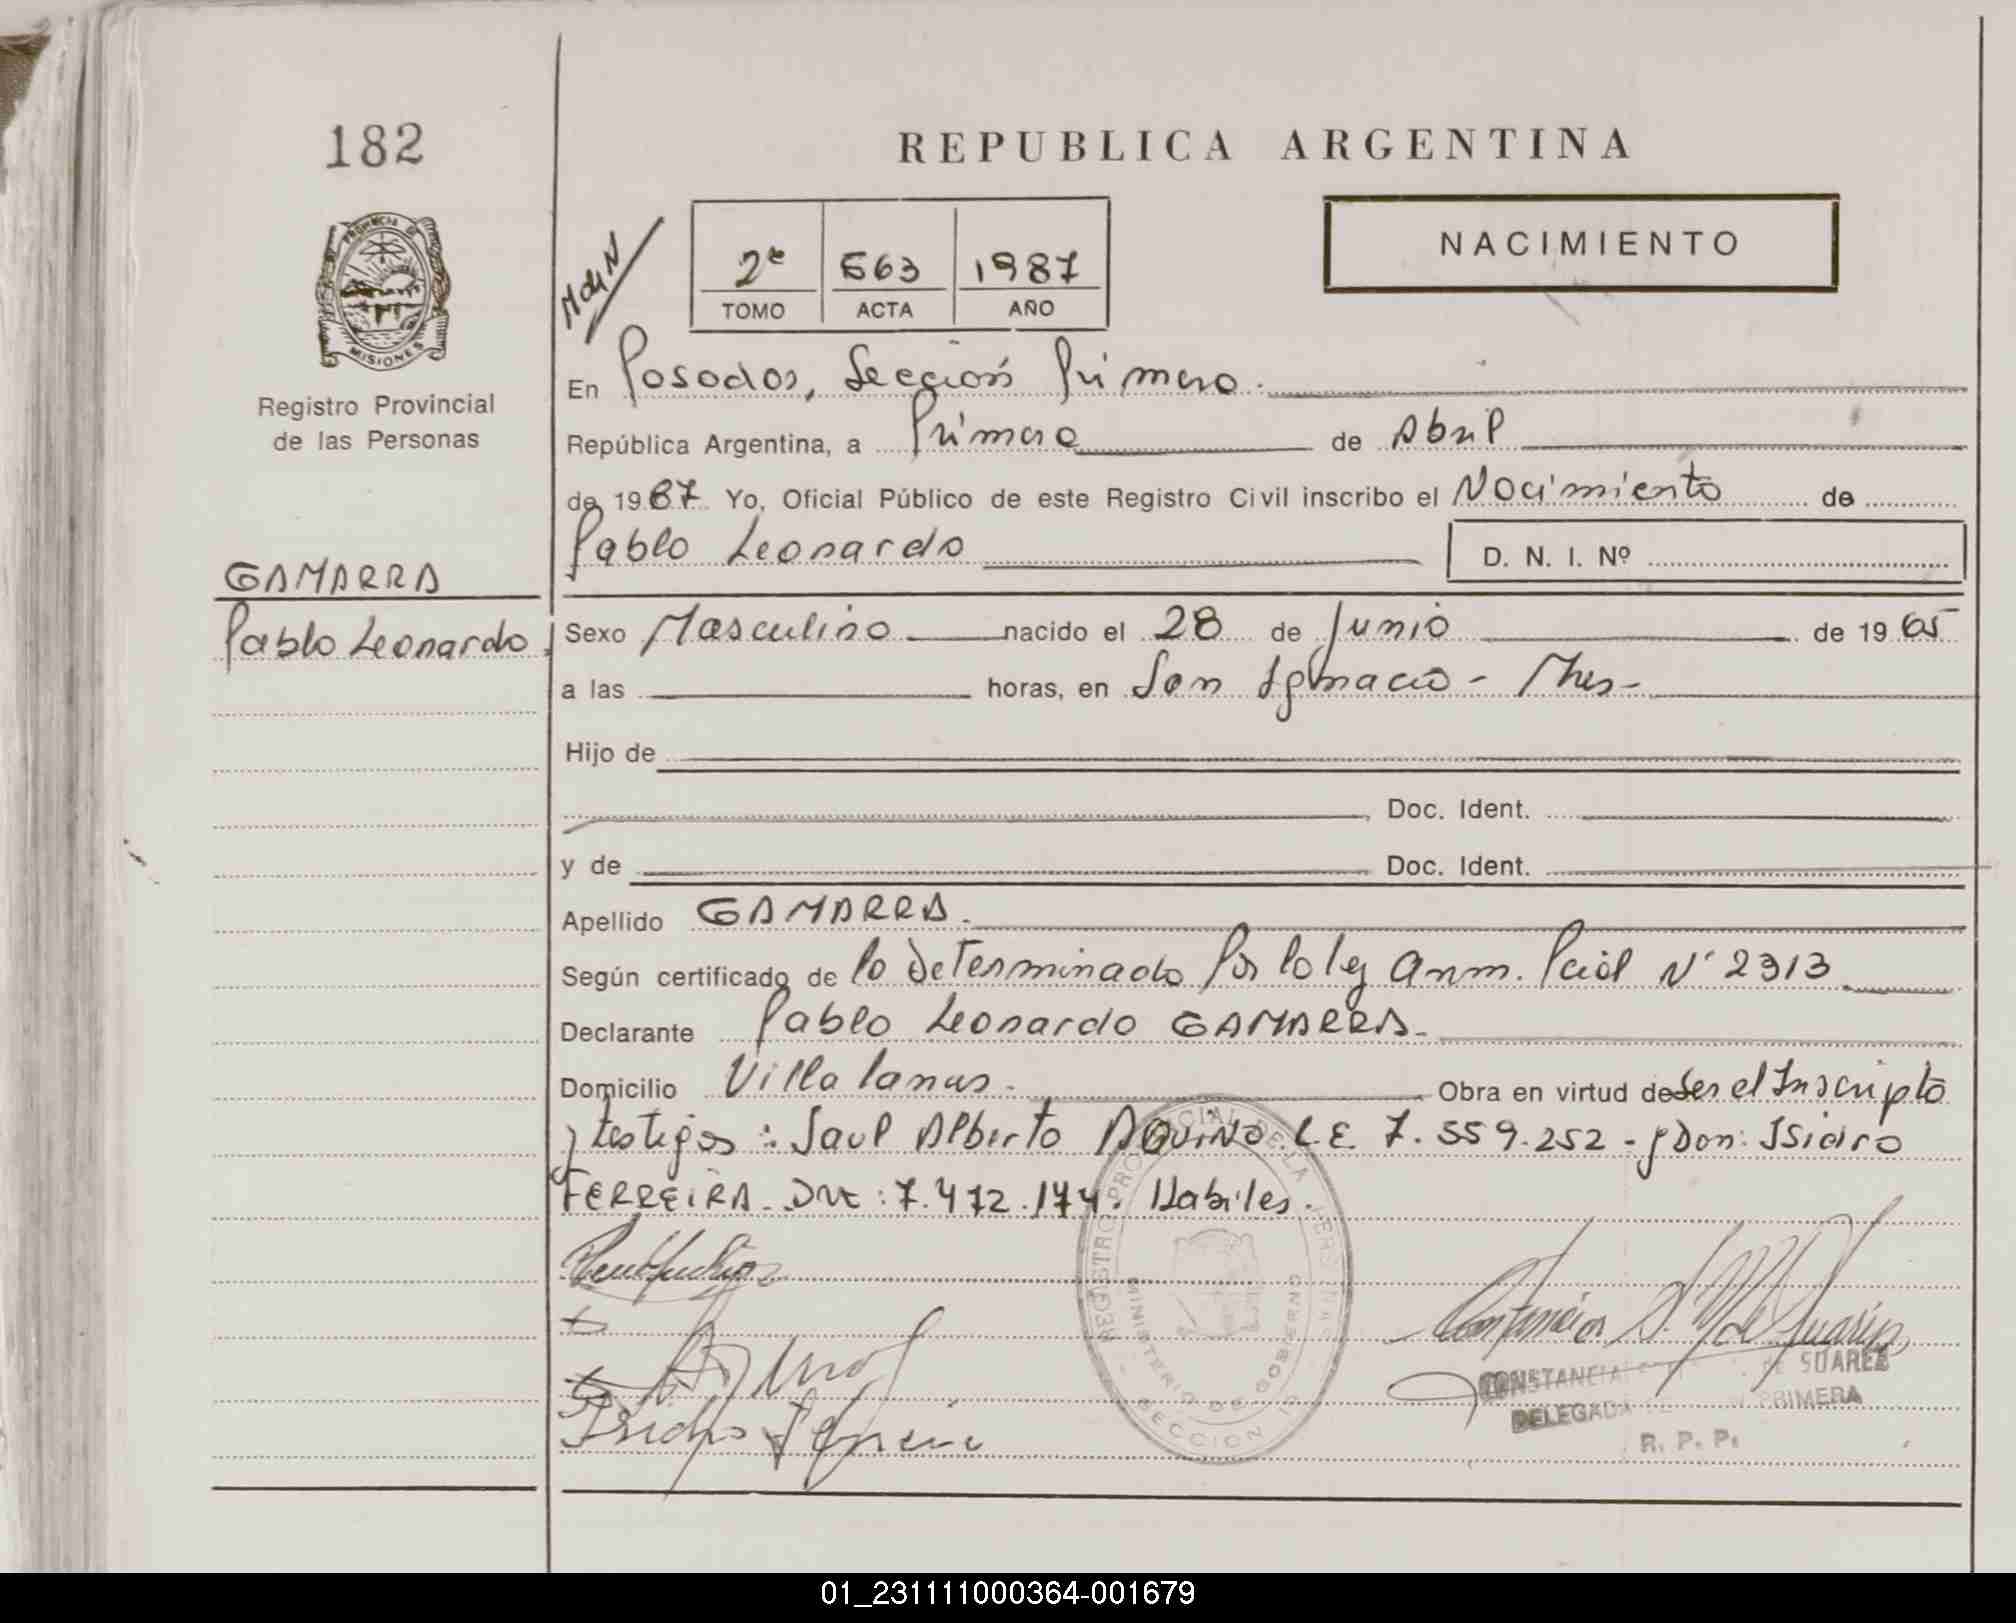 182
REPUBLICA ARGENTINA
PROVINCIA DE
MISIONES
Registro Provincial
de las Personas
MdiN
2º 563 1987
TOMO ACTA AÑO
NACIMIENTO
En Posadas, Sección Primera.
República Argentina, a Primero de Abril
de 1987 Yo, Oficial Público de este Registro Civil inscribo el Nacimiento de
Pablo Leonardo D. N. I. Nº
GAMARRA
Pablo Leonardo
Sexo Masculino nacido el 28 de Junio de 1965
a las horas, en San Ignacio - Mnes -
Hijo de
Doc. Ident.
y de Doc. Ident.
Apellido GAMARRA.
Según certificado de lo determinado Por la ley Anm. Pcial Nº 2313
Declarante Pablo Leonardo GAMARRA.
Domicilio Villa Lanus. Obra en virtud de ser el Inscripto
y testigos: Saul Alberto AQUINO L.E. 7.559.252 - y Don: Isidro
FERREIRA. DNI: 7.472.174. Habiles.
REGISTRO PROVINCIAL DE LAS PERSONAS
MINISTERIO DE GOBIERNO
SECCION 1ª
Isidro Ferreira
CONSTANCIA DE SUAREZ
DELEGADA PRIMERA
R. P. P.
01_231111000364-001679